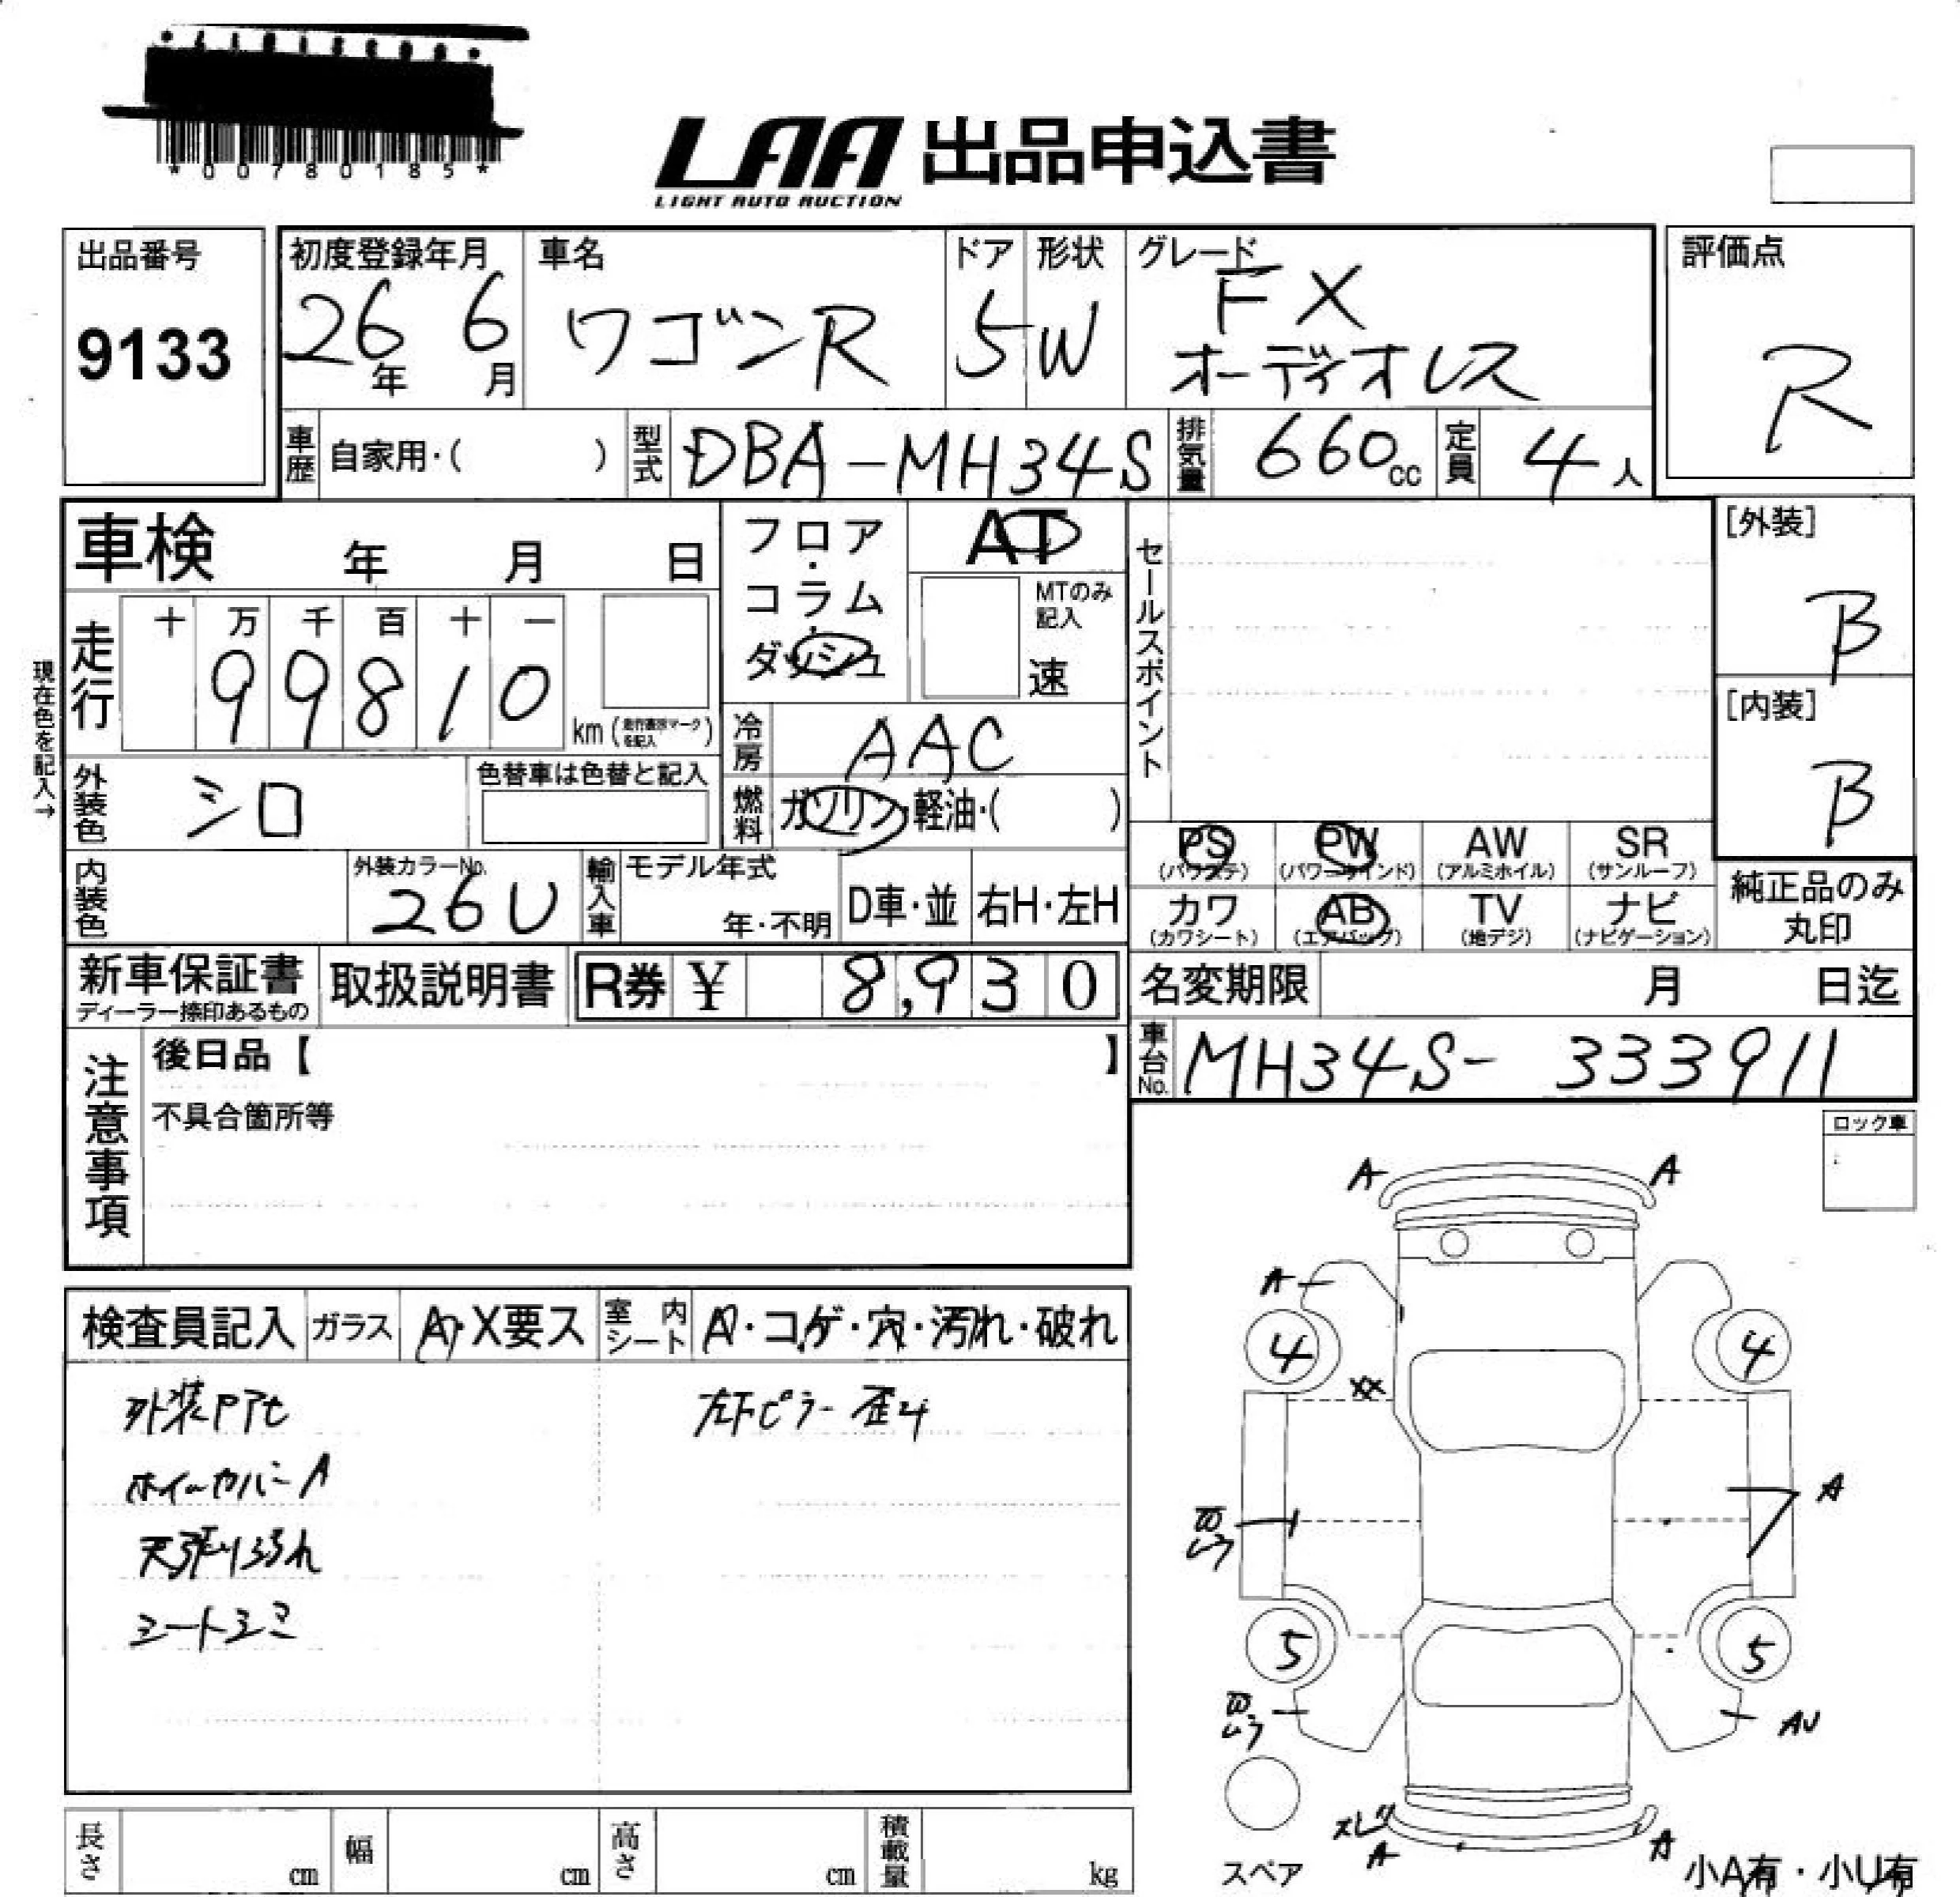 *00780185*
LAA 出品申込書
LIGHT AUTO AUCTION
出品番号
9133
初度登録年月
26年 6月
車名
ワゴンR
ドア
5
形状
W
グレード
FX
オーディオレス
評価点
R
車歴 自家用・( )
型式 DBA-MH34S
排気量 660cc
定員 4人
車検 年 月 日
現在色を記入→
走行
十 万 千 百 十 一
9 9 8 1 0
km (走行表示マークを記入)
フロア・コラム・ダッシュ
AT
MTのみ記入
速
冷房 AAC
燃料 ガソリン・軽油・( )
セールスポイント
[外装]
B
[内装]
B
外装色 シロ
色替車は色替と記入
内装色
外装カラーNo.
26U
輸入車
モデル年式
年・不明
D車・並
右H・左H
PS
(パワステ)
PW
(パワーウインド)
AW
(アルミホイル)
SR
(サンルーフ)
カワ
(カワシート)
AB
(エアバッグ)
TV
(地デジ)
ナビ
(ナビゲーション)
純正品のみ
丸印
新車保証書
ディーラー捺印あるもの
取扱説明書
R券 ¥ 8,930
名変期限 月 日迄
車台No. MH34S-333911
注意事項
後日品【 】
不具合箇所等
ロック車
検査員記入
ガラス A・X要ス
室内シート A・コゲ・穴・汚れ・破れ
ホイールカバーA
天張り汚れ
シートシミ
左下ピラー歪み
A A
A
4 4
XX
A
5 5
AU
スレ
A
A
スペア
小A有・小U有
長さ cm
幅 cm
高さ cm
積載量 kg